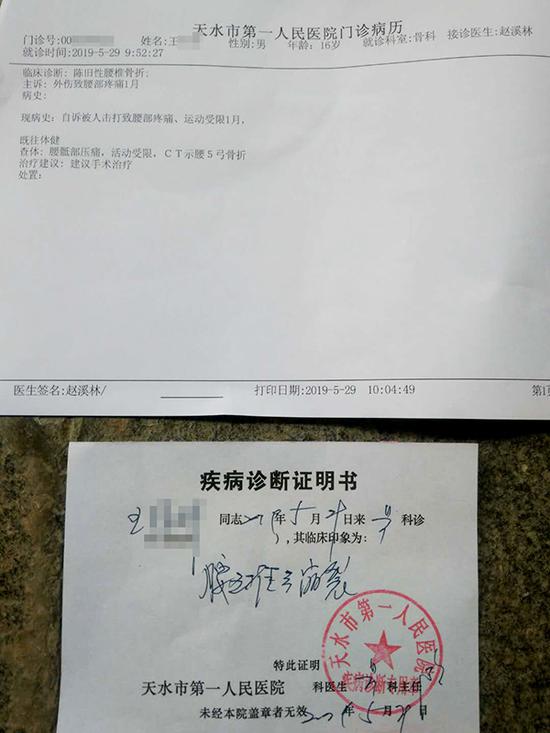 天水市第一人民医院门诊病历
门诊号:00 姓名:王 性别:男 年龄:16岁 就诊科室:骨科 接诊医生:赵溪林
就诊时间:2019-5-29 9:52:27
临床诊断: 陈旧性腰椎骨折;
主诉: 外伤致腰部疼痛1月
病史:
现病史: 自诉被人击打致腰部疼痛、运动受限1月,
既往体健
查体: 腰骶部压痛, 活动受限, CT示腰5弓骨折
治疗建议: 建议手术治疗
处置:
医生签名:赵溪林/ 打印日期:2019-5-29 10:04:49 第1页
疾病诊断证明书
王 同志 年5月29日来骨科诊
,其临床印象为:
腰5椎弓崩裂
特此证明
天水市第一人民医院 科医生 科主任
未经本院盖章者无效 年5月29日
天水市第一人民医院
疾病诊断专用章